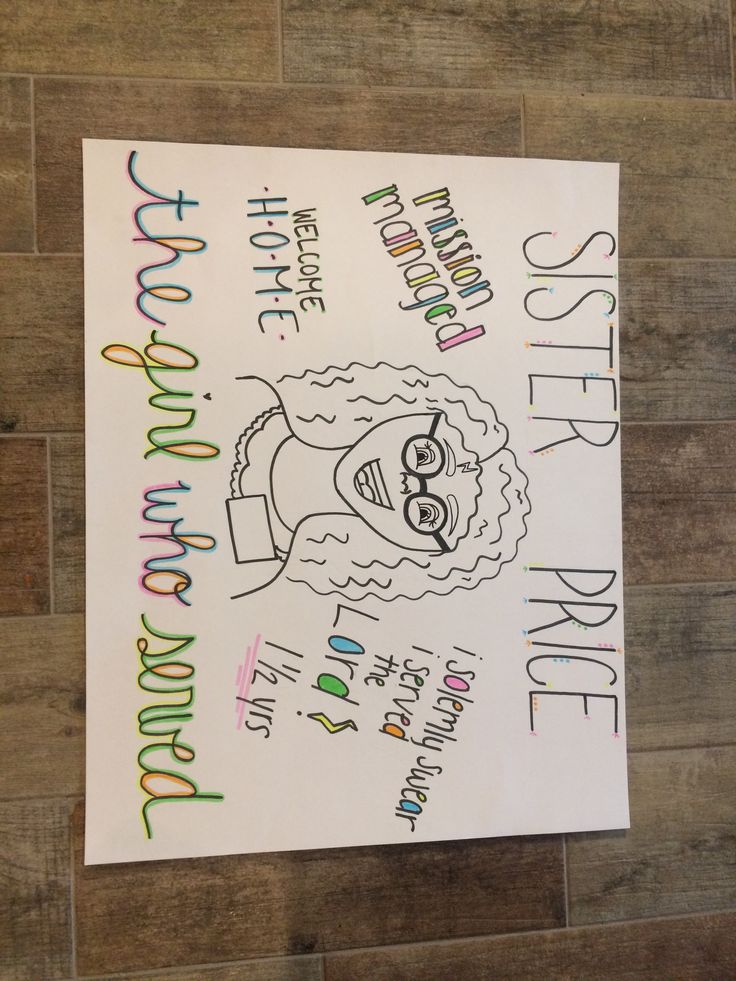 SISTER PRICE
mission
managed
WELCOME
·H·O·M·E·
i solemly swear
i served
the
Lord
1 1/2 yrs
the girl who served